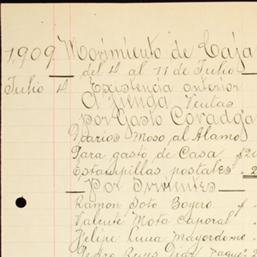 1909 Movimiento de Caja
del 4 al 11 de Julio
Julio 4 Existencia anterior
A Tienda Ventas
Por Gasto Covadga
Varios Moso al Alamo
Para gasto de Casa $20
Estampillas postales 2
Por Sirvientes
Ramon Soto Boyero $
Valente Mota Caporal
Felipe Luna Mayordomo
Pedro Reyes Diaz